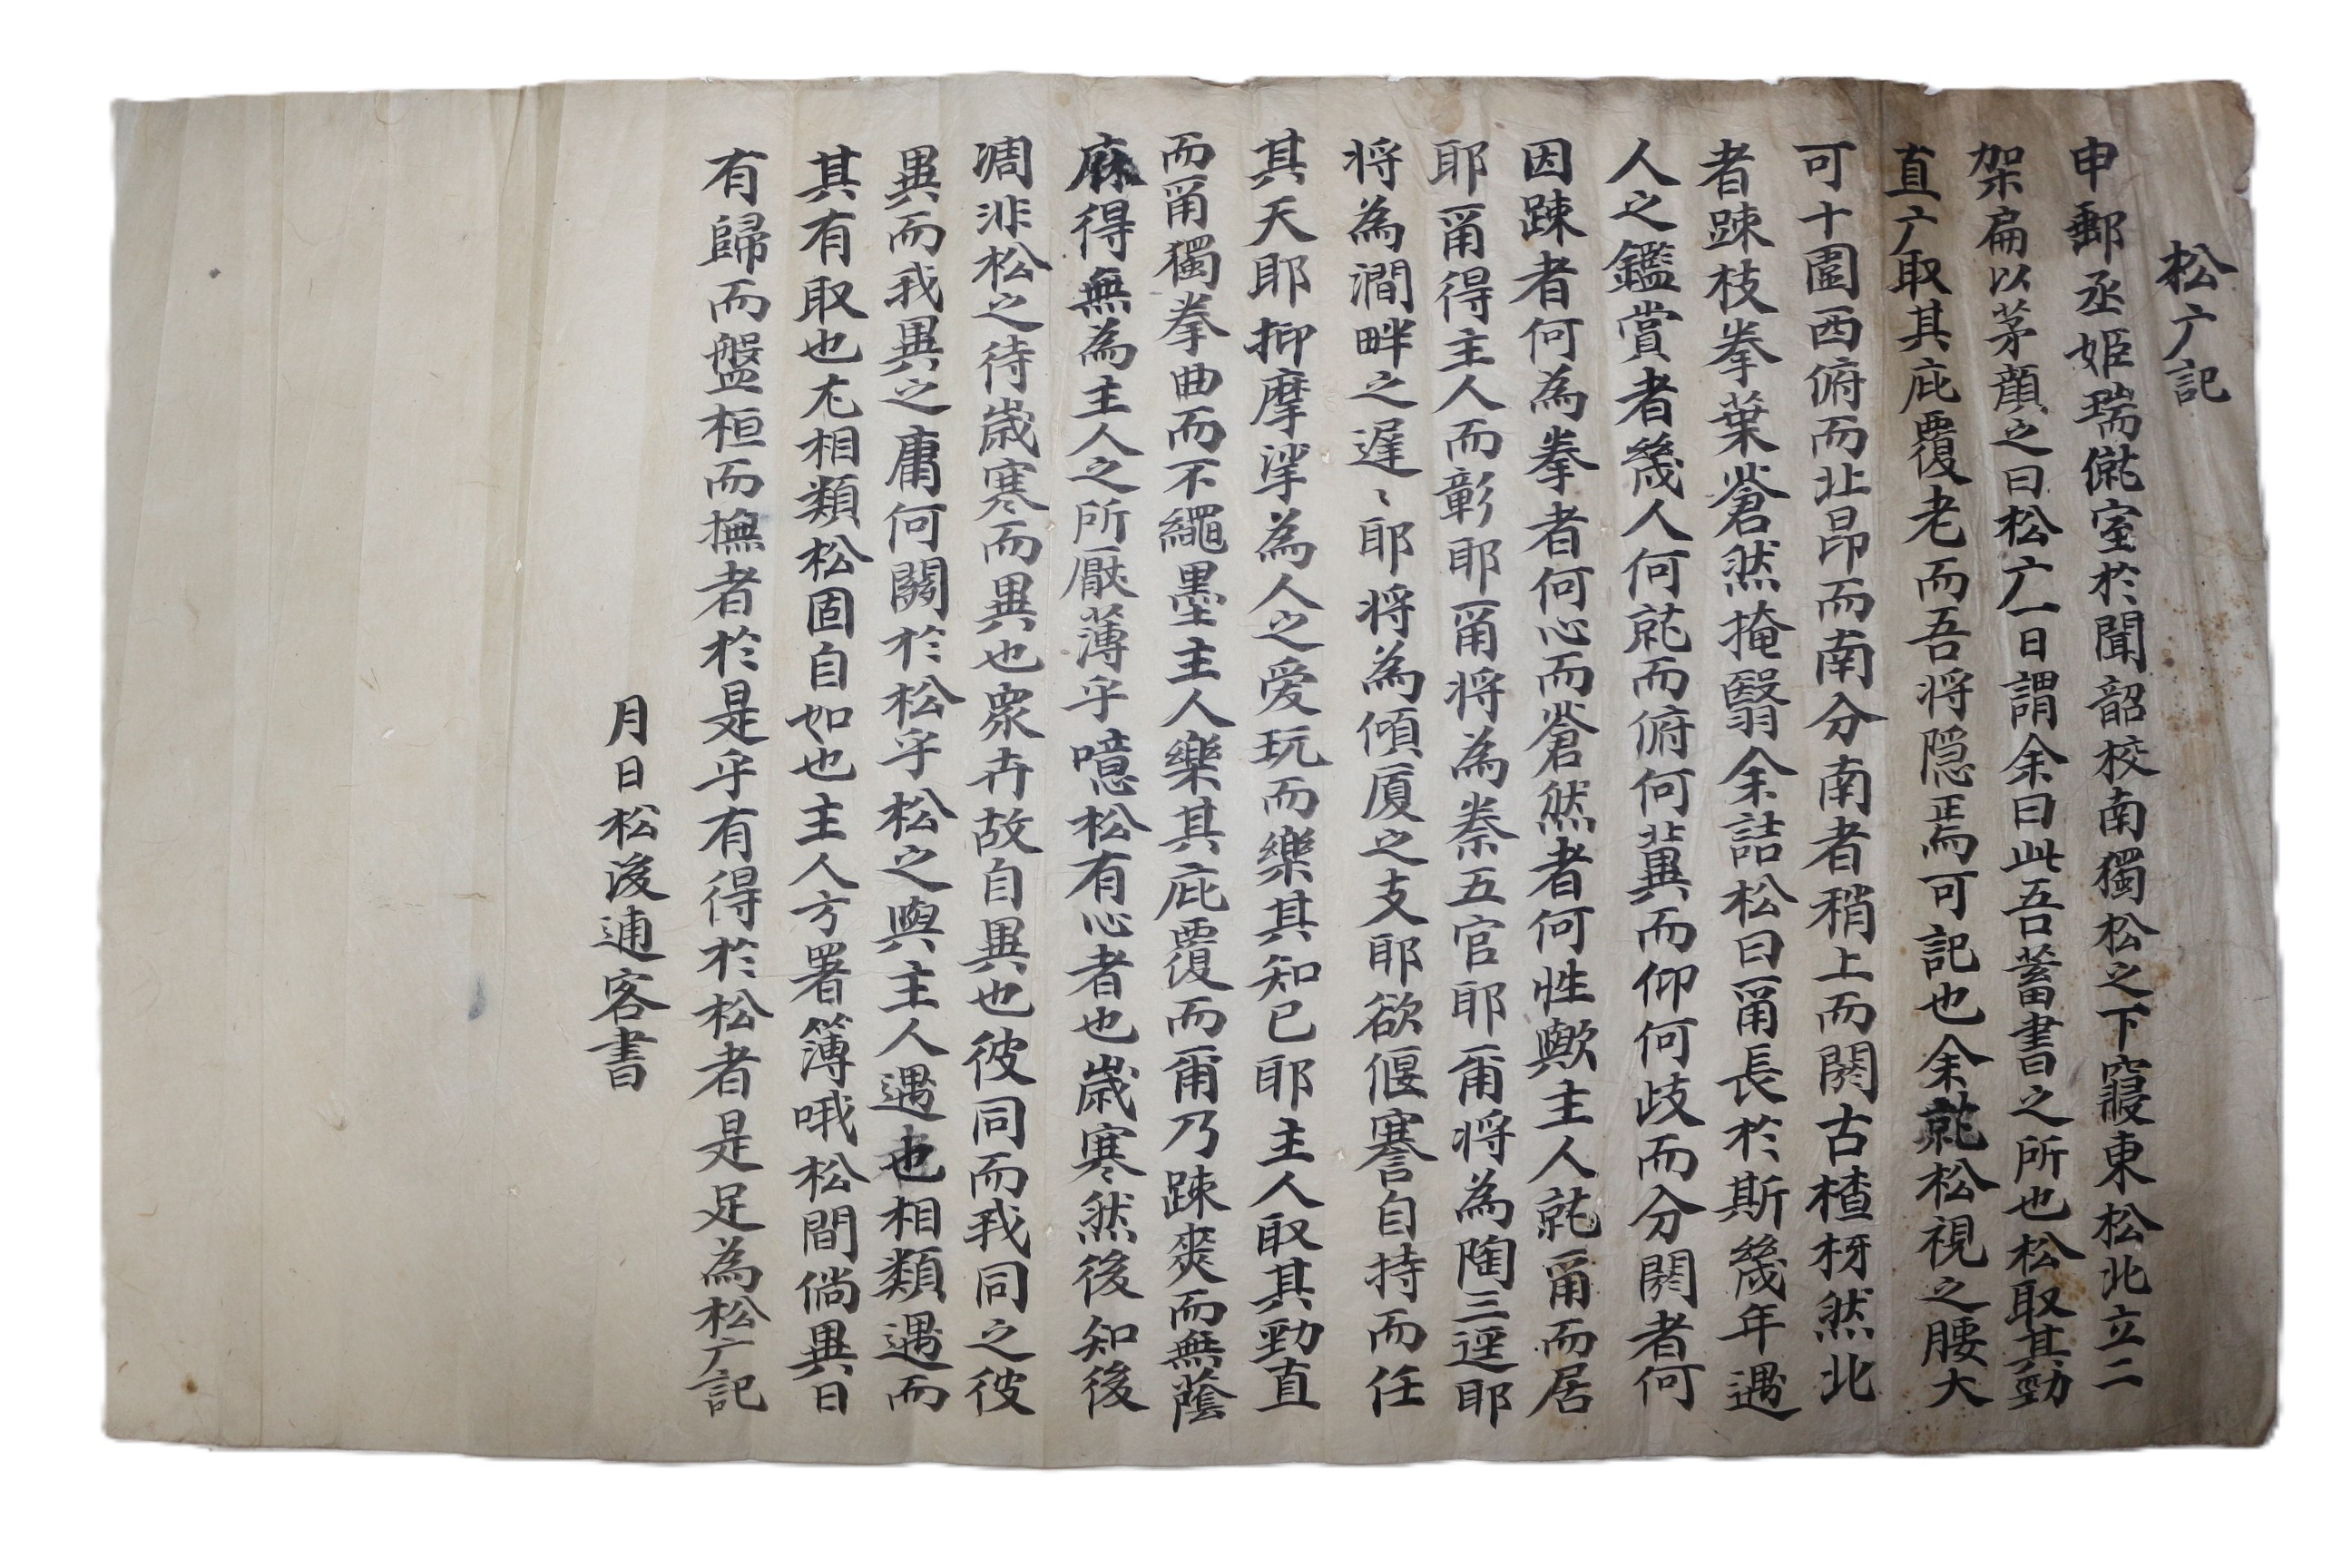 松广記
申郵丞姬瑞僦室於聞韶校南獨松之下寢東松北立二
架扁以茅顔之曰松广一日謂余曰此吾蓄書之所也松取其勁
直广取其庇覆老而吾将隠焉可記也余就松視之腰大
可十圍西俯而北昂而南分南者稍上而閼古楂枒然北
者踈枝拳葉蒼然掩翳余詰松曰爾長於斯幾年遇
人之鑑賞者幾人何就而俯何冀而仰何歧而分閼者何
因踈者何為拳者何心而蒼然者何性歟主人就爾而居
耶爾得主人而彰耶爾将為秦五官耶爾将為陶三逕耶
将為澗畔之遲〻耶将為傾厦之支耶欲偃蹇自持而任
其天耶抑摩挲為人之愛玩而樂其知已耶主人取其勁直
而爾獨拳曲而不繩墨主人樂其庇覆而爾乃踈爽而無蔭
庥得無為主人之所厭薄乎噫松有心者也歳寒然後知後
凋非松之待歳寒而異也衆卉故自異也彼同而我同之彼
異而我異之庸何關於松乎松之與主人遇也相類遇而
其有取也尤相類松固自如也主人方署簿哦松間倘異日
有歸而盤桓而撫者於是乎有得於松者是足為松广記
月日松後逋客書